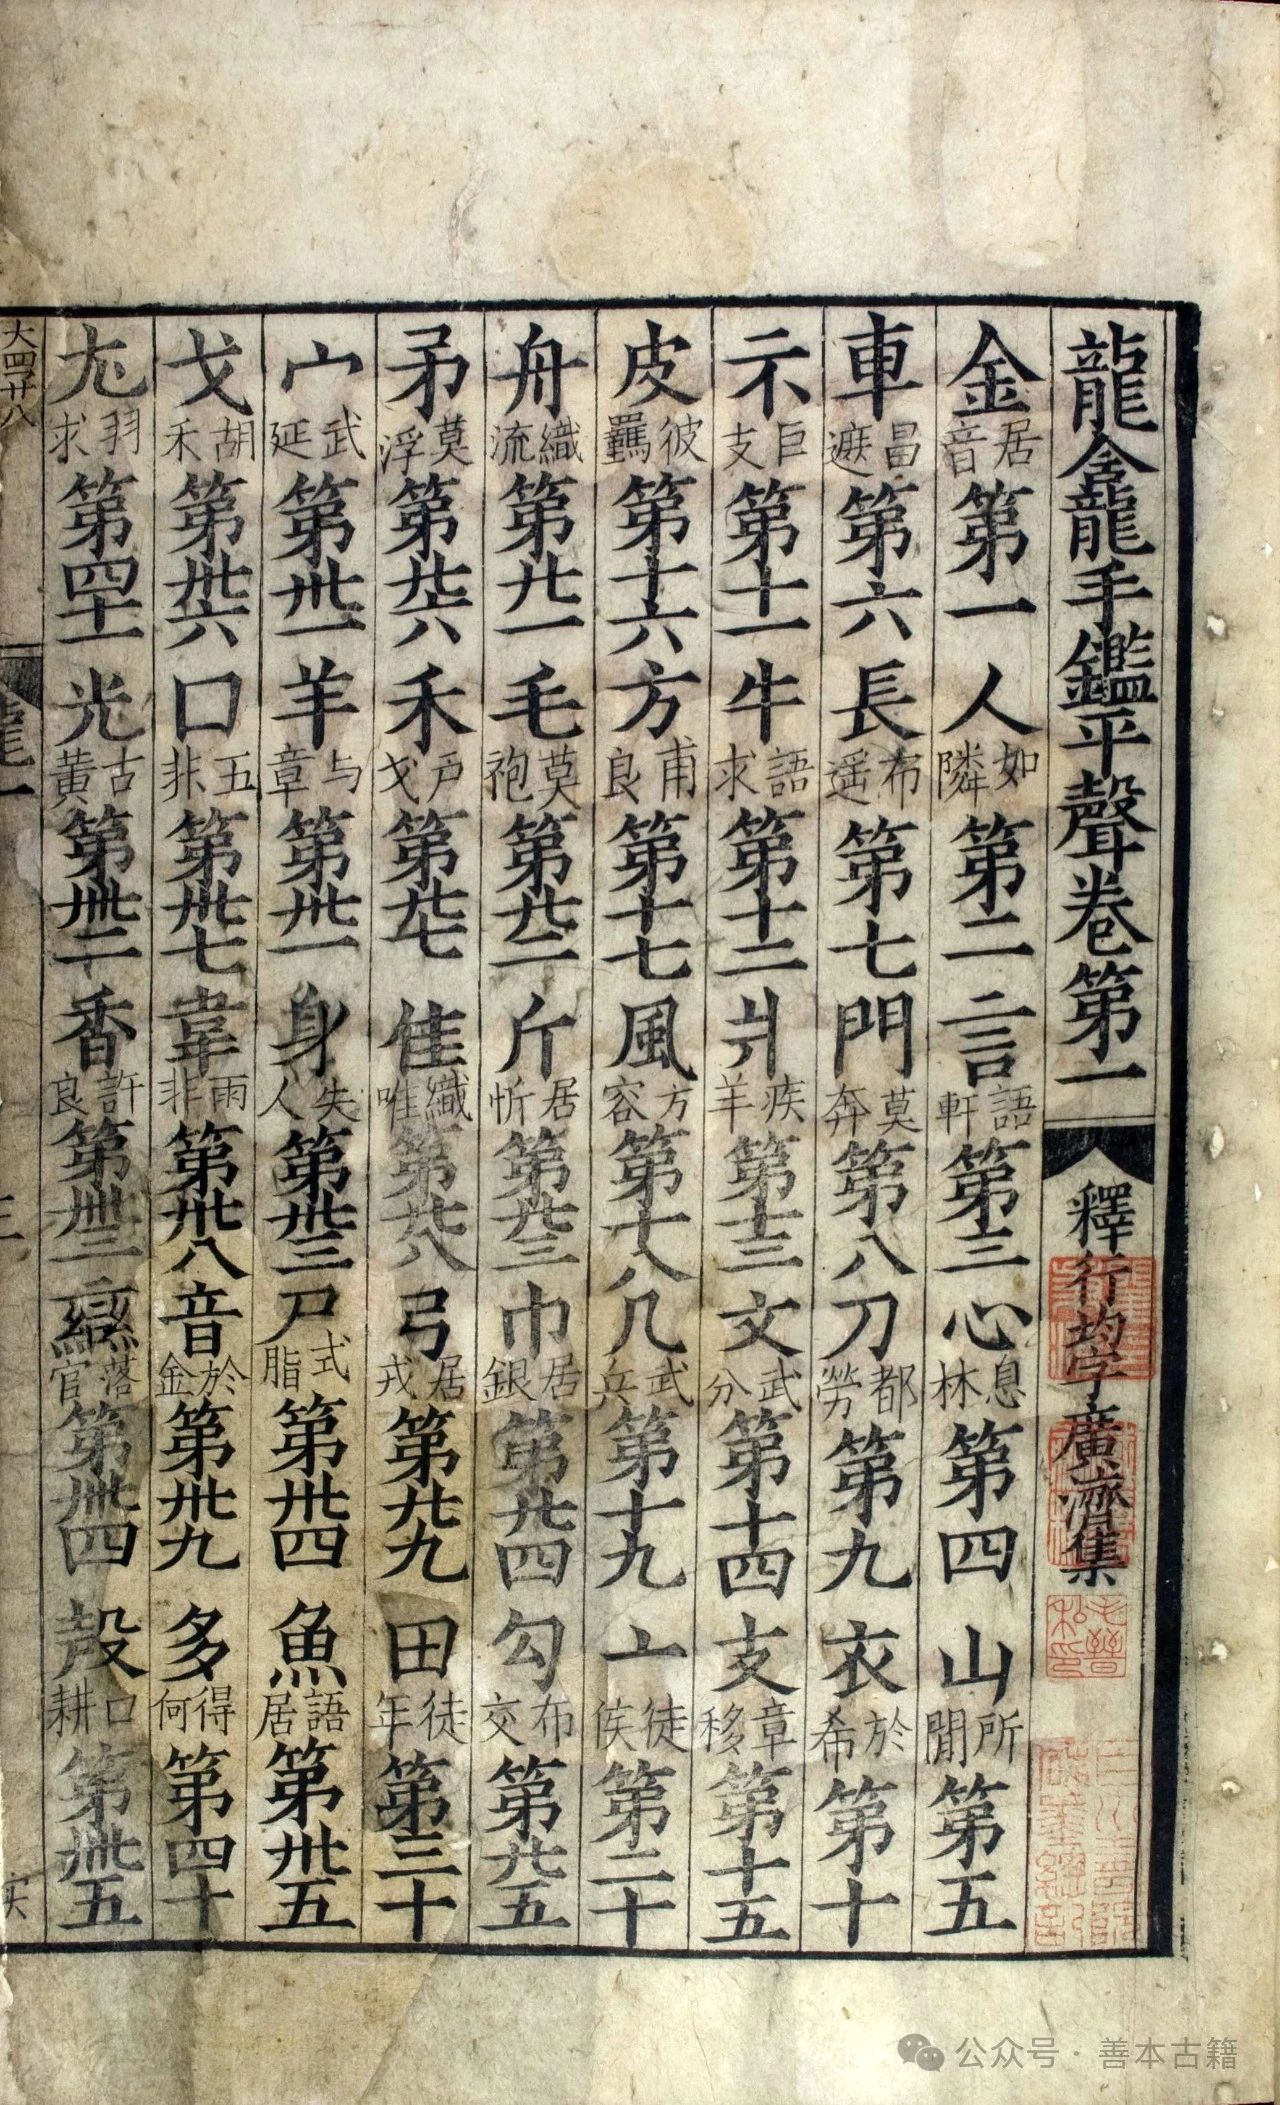 龍龕手鑑平聲卷第一 釋行均字廣濟集
金居音第一 人如隣第二 言語軒第三 心息林第四 山所閒第五
車昌遮第六 長布遥第七 門莫奔第八 刀都勞第九 衣於希第十
示巨支第十一 牛語求第十二 爿疾羊第十三 文武分第十四 支章移第十五
皮彼羈第十六 方甫良第十七 風方容第十八 几武兵第十九 亠徒侯第二十
舟織流第廿一 毛莫袍第廿二 斤居忻第廿三 巾居銀第廿四 勾布交第廿五
矛莫浮第廿六 禾戶戈第廿七 隹織唯第廿八 弓居戎第廿九 田徒年第三十
宀武延第卅一 羊与章第卅一 身失人第卅三 尸式脂第卅四 魚語居第卅五
戈胡禾第卅六 口五非第卅七 韋雨非第卅八 音於金第卅九 多得何第四十
尢羽求第四十一 光古黃第卌二 香許良第卌三 䜌落官第卌四 殸口耕第卌五
大四廿八
龍一
毛晉私印
公众号·善本古籍